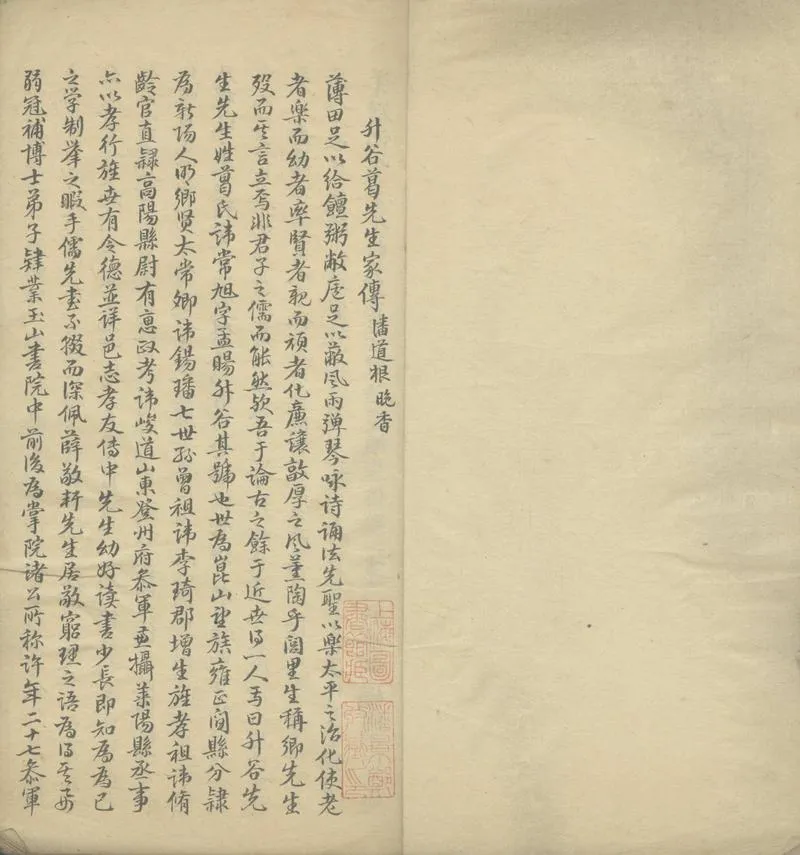 升谷葛先生家傳 潘道根晚香
薄田足以給饘粥敝廬足以蔽風雨彈琴咏诗诵法先聖以樂太平之治化使老
者樂而幼者率賢者親而頑者化廉讓敦厚之风薰陶乎閭里生稱鄉先生
殁而其言立焉非君子之儒而能然欤吾于論古之餘于近世得一人焉曰升谷先
生先生姓葛氏諱常旭字孟暘升谷其號也世為崑山望族雍正间縣分隸
為新陽人明鄉贤太常卿諱錫璠七世孫曾祖諱李琦郡增生旌孝祖諱脩
齡官直隸高陽縣尉有惠政考諱峻道山東登州府叅軍兼攝莱陽縣丞事
亦以孝行旌世有令德並详邑志孝友傳中先生幼好读書少長即知為為己
之学制举之暇手儒先書不掇而深佩薛敬軒先生居敬窮理之語為得其要
弱冠補博士弟子肄業玉山書院中前後為掌院诸公所称许年二十七叅軍
上海圖
書館藏